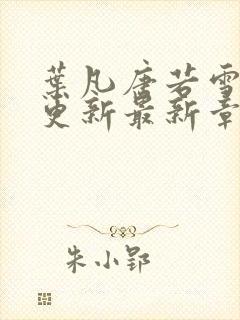 葉凡唐若雪
更新最新章
朱小郢